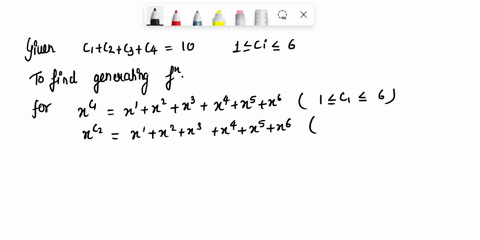 Given C₁+C₂+C₃+C₄ = 10 1≤Ci≤6
To find generating fⁿ.
for x^C₁ = x¹+x²+x³+x⁴+x⁵+x⁶ (1≤C₁≤6)
x^C₂ = x¹+x²+x³+x⁴+x⁵+x⁶ (